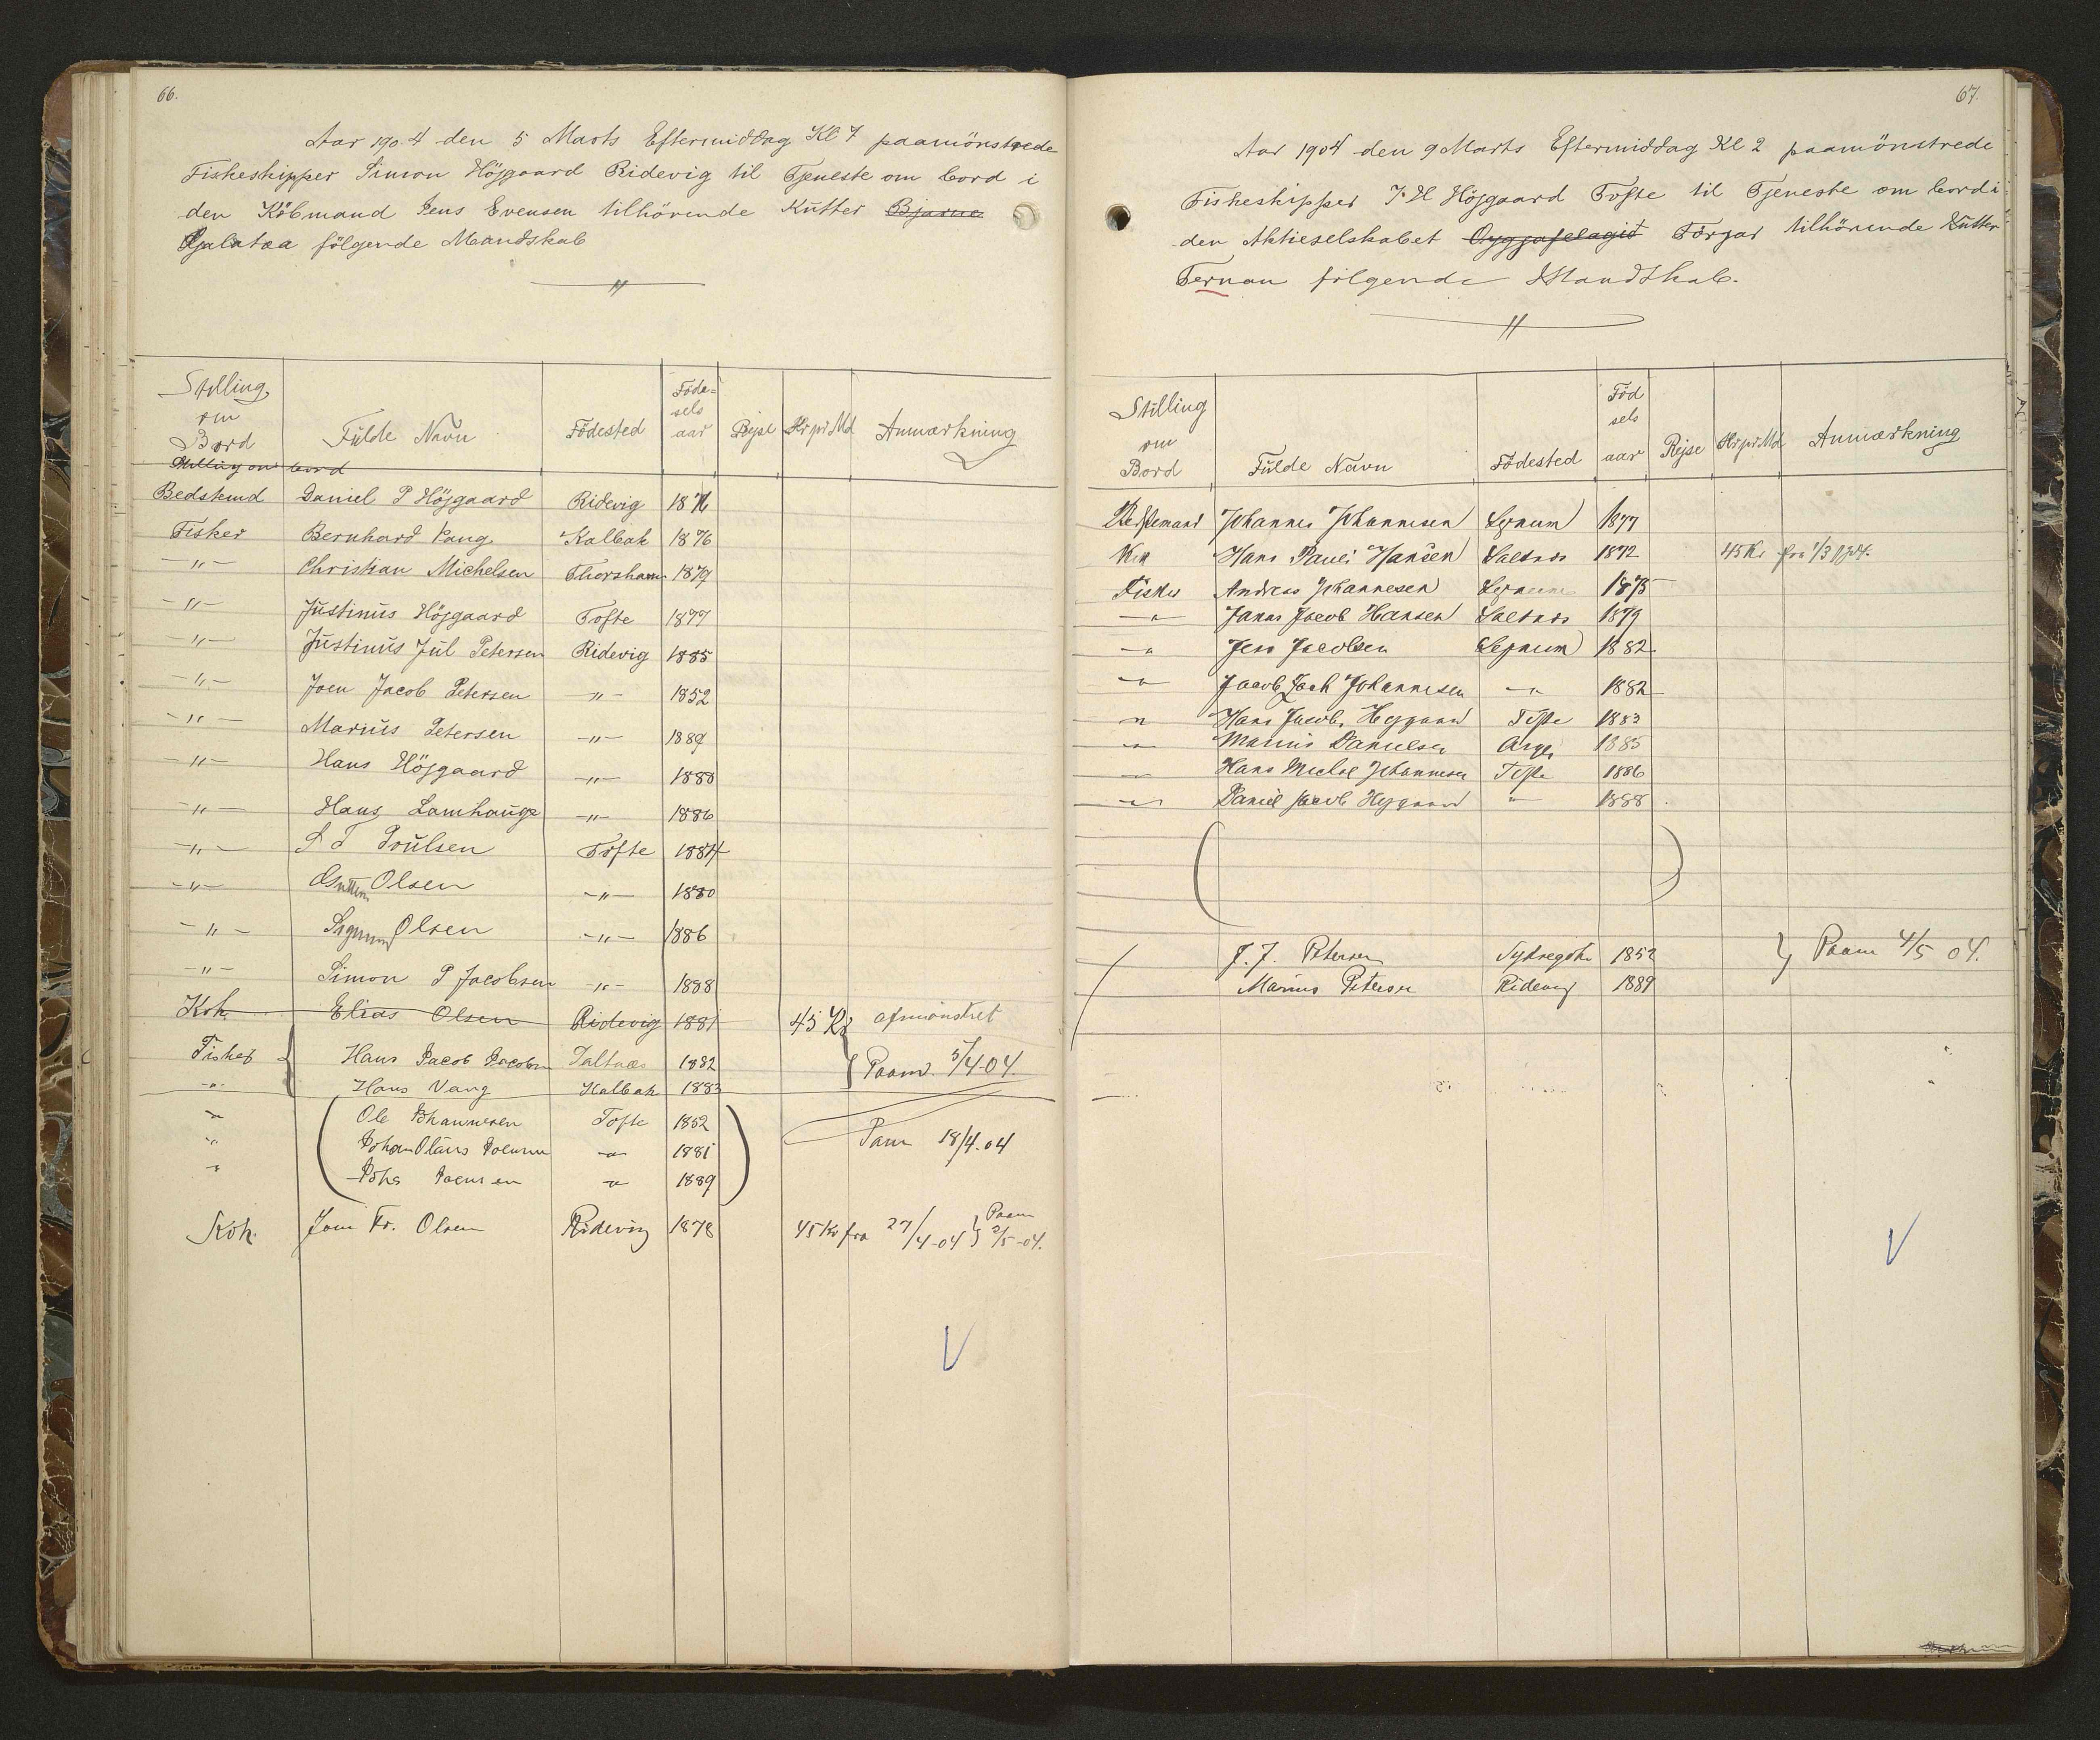 66.
Aar 1904 den 5 Marts Eftermiddag Kl 7 paamönstrede
Fiskeskipper Simon Höjgaard Ridevig til Tjeneste om bord i
den Köbmand Jens Evensen tilhörende Kutter Bjarne
Galatea fölgende Mandskab
Stilling om Bord Fulde Navn Födested Födelsels aar Rejse Kr pr Md Anmærkning
Stilling om bord
Bedstemd Daniel P Höjgaard Ridevig 1876
Fisker Bernhard Vang Kalbak 1876
-"- Christian Michelsen Thorshavn 1879
-"- Justinus Höjgaard Tofte 1877
-"- Justinus Jul Petersen Ridevig 1885
-"- Joen Jacob Petersen -"- 1852
-"- Marius Petersen -"- 1889
-"- Hans Höjgaard -"- 1880
-"- Hans Lamhauge -"- 1886
-"- S T Poulsen Tofte 1884
-"- Guttorm Olsen -"- 1880
-"- Sigmund Olsen -"- 1886
-"- Simon P Jacobsen -"- 1888
Kok Elias Olsen Ridevig 1881 45 Kr afmönstret
Fisker Hans Jacob Jacobsen Saltnæs 1882 Paam. 5/4-04.
-"- Hans Vang Kalbak 1883
-"- Ole Johannesen Tofte 1852
-"- Johan Olaus Joensen -"- 1881 Pam 18/4.04
-"- Johs Joensen -"- 1889
Kok. Joen Fr. Olsen Ridevig 1878 45 Kr fra 27/4-04 } Paam 2/5-04.
67.
Aar 1904 den 9 Marts Eftermiddag Kl 2 paamönstrede
Fiskeskipper J. H Höjgaard Tofte til Tjeneste om bord i
den Aktieselskabet Oyggjafelagid Törgar tilhörende Kutter
Ternan fölgende Mandskab.
Stilling om Bord Fulde Navn Födested Föd sels aar Rejse Kr pr Md Anmærkning
Bedstemand Johannes Johannesen Lejnum 1877
Kok Hans Pauli Hansen Saltnæs 1872 45 Kr fra 1/3 1904.
Fisker Andreas Johannesen Lejnum 1875
-"- Janus Jacob Hansen Saltnæs 1879
-"- Jens Jacobsen Lejnum 1882
-"- Jacob Zach Johannesen -"- 1882
-"- Hans Jacob Hojgaard Tofte 1883
-"- Marius Danielsen Arge 1885
-"- Hans Michel Johannesen Tofte 1886
-"- Daniel Jacob Hojgaard -"- 1888
J. J. Petersen Sydregöte 1852 } Paam 4/5 04.
Marius Petersen Ridevig 1889